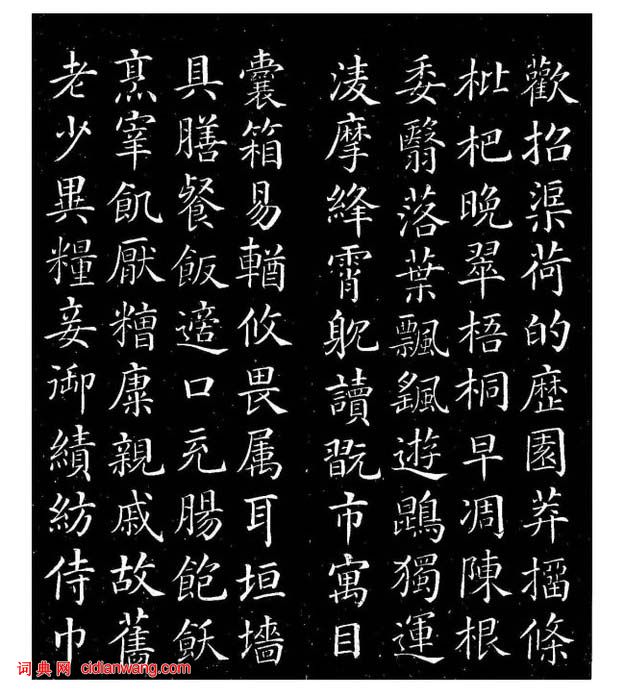 歡招渠荷的歷園莽擂條
枇杷晚翠梧桐早凋陳根
委翳落葉飄颻遊鵾獨運
淩摩絳霄躭讀翫市寓目
囊箱易輶攸畏属耳垣墻
具膳餐飯適口充腸飽飫
烹宰飢厭糟糠親戚故舊
老少異糧妾御績紡侍巾
词典网 cidianwang.com